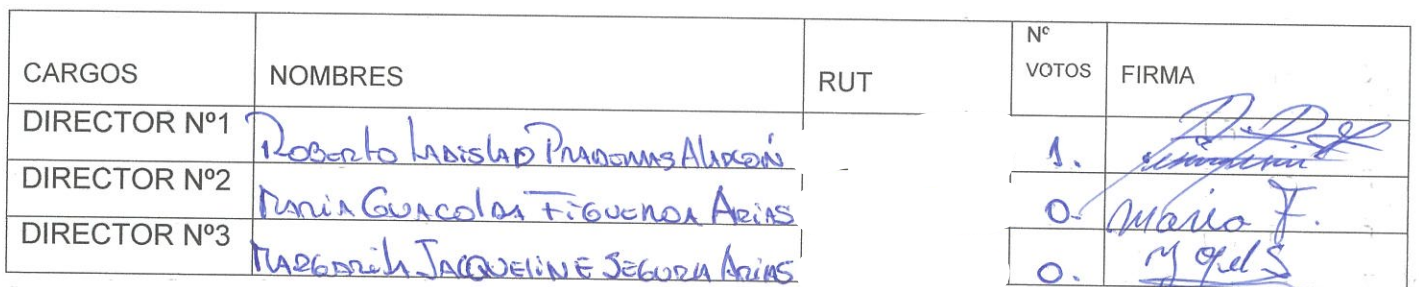 CARGOS NOMBRES RUT Nº VOTOS FIRMA
DIRECTOR Nº1 Roberto Ladislao Pradenas Alarcón 1.
DIRECTOR Nº2 Maria Guacolda Figueroa Arias 0. Maria F.
DIRECTOR Nº3 Margarita Jacqueline Segura Arias 0.